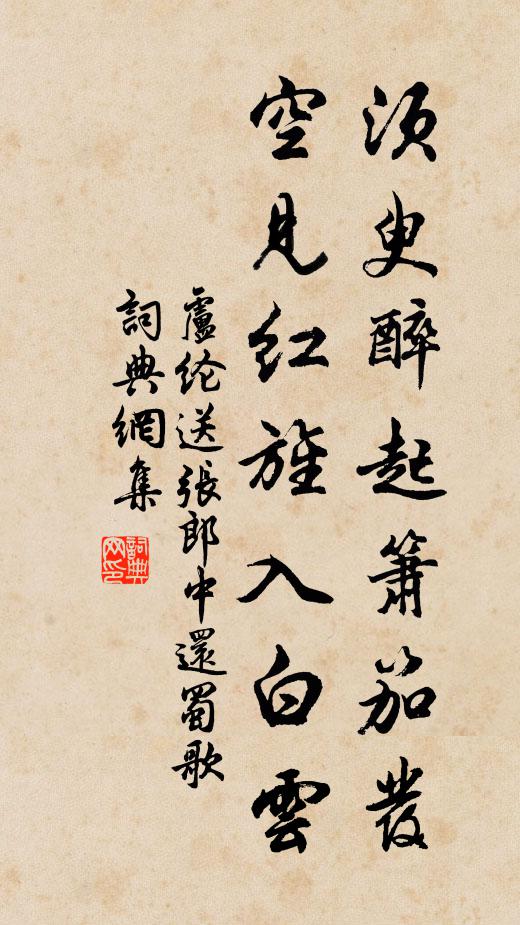 須臾醉起簫笳發
空見紅旌入白雲
盧纶送張郎中還蜀歌
詞典網集
詞典网印